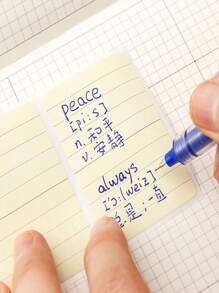 peace
[pi:s]
n. 和平
v. 安静
always
['ɔ:lweiz]
是; 一直